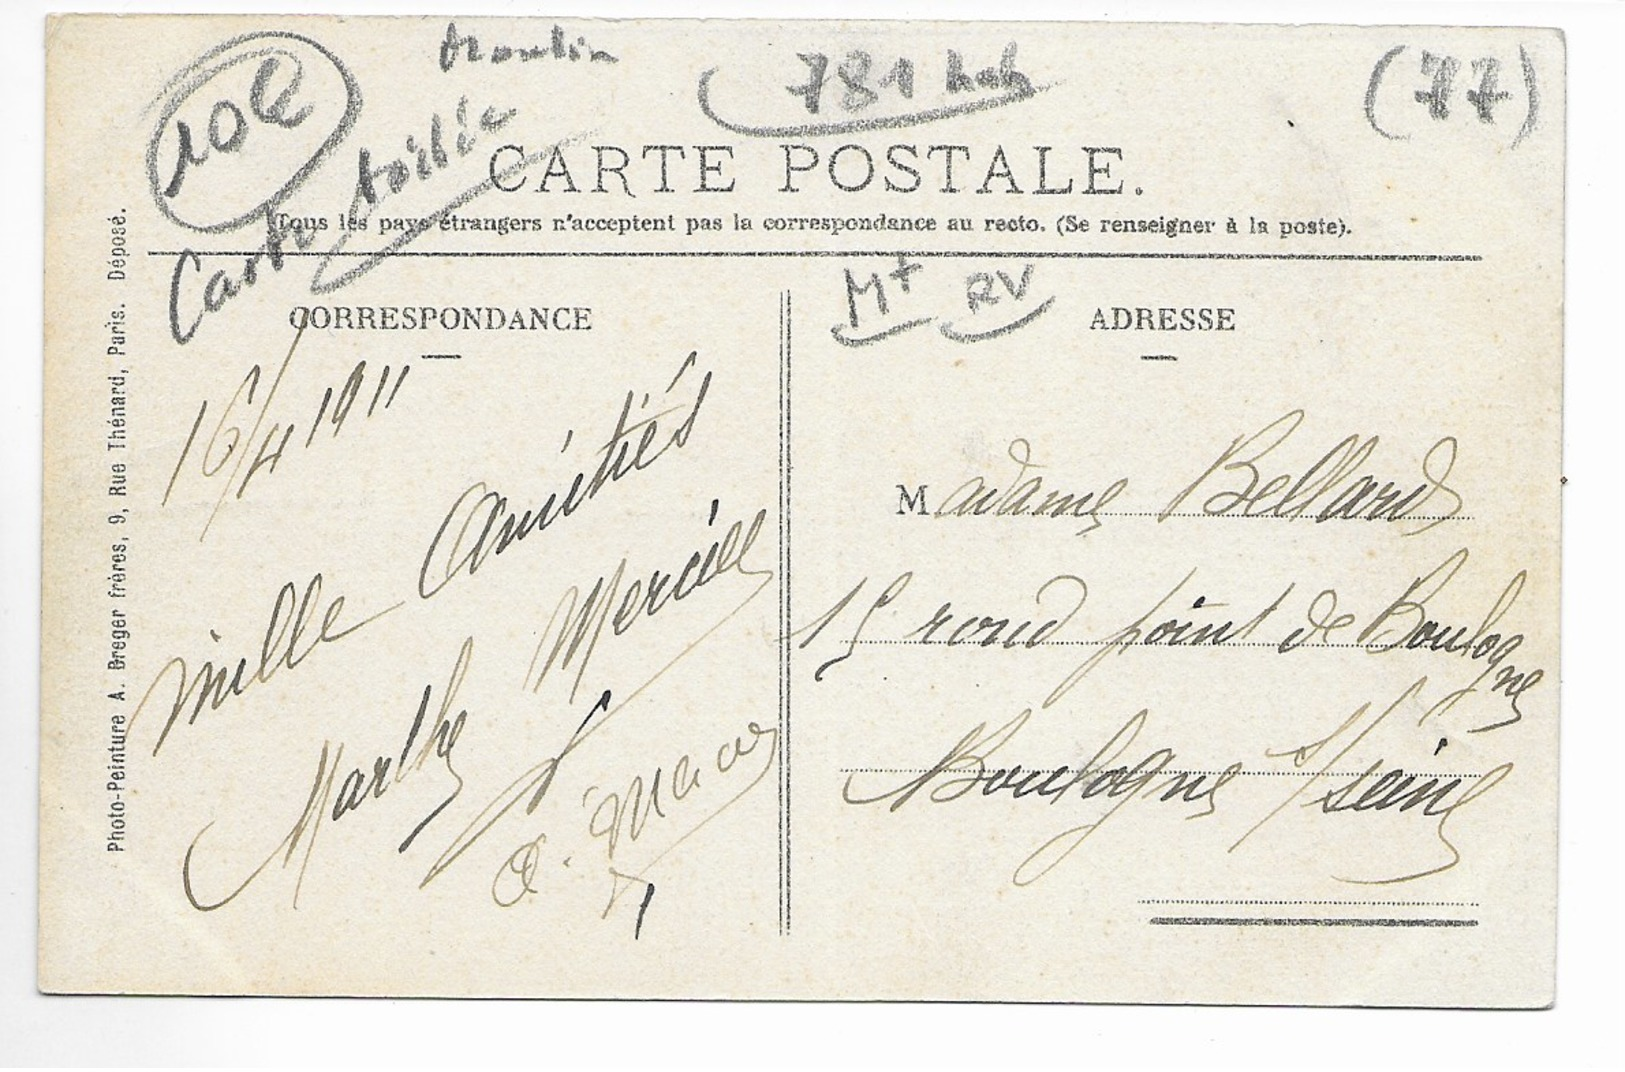 10€
Moulin
(781 hab
(77)
Carte toilée
CARTE POSTALE.
Tous les pays étrangers n'acceptent pas la correspondance au recto. (Se renseigner à la poste).
Mt RV
CORRESPONDANCE
16/4 1911
Mille Amitiés
Marthe Mercier
ADRESSE
Madame Bellard
15 rond point de Boulogne
Boulogne s/seine
Photo-Peinture A. Breger frères, 9, Rue Thénard, Paris. Déposé.